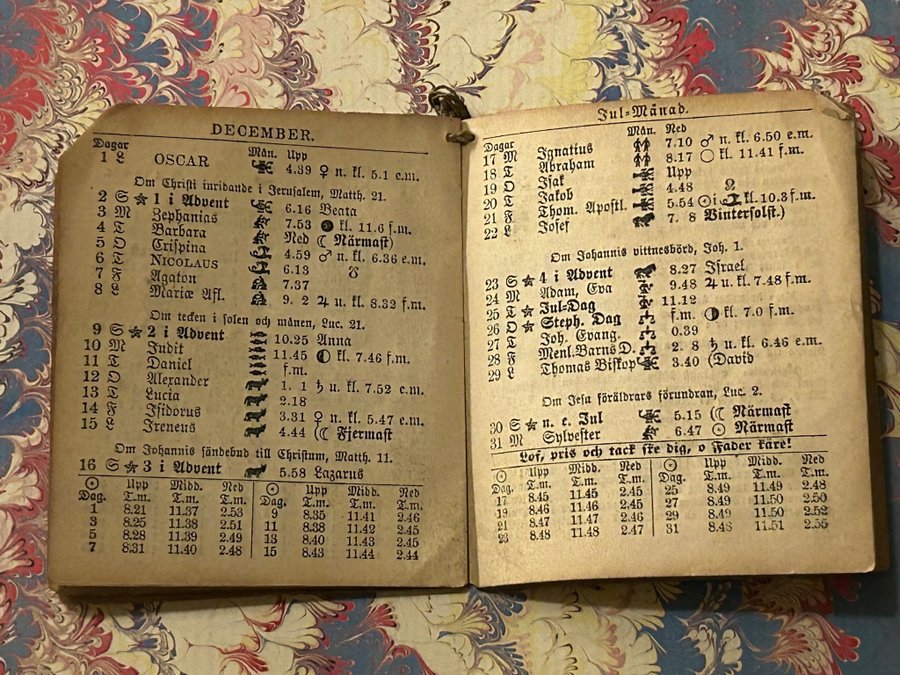 DECEMBER.
Dagar Mån. Upp
1 L OSCAR 4.39 ♀ n. kl. 5.1 e.m.
Om Christi inridande i Jerusalem, Matth. 21.
2 S ★ 1 i Advent 6.16 Beata
3 M Zephanias 7.53 ● kl. 11.6 f.m.
4 T Barbara Ned (☾ Närmast)
5 O Crispina 4.59 ♂ n. kl. 6.36 e.m.
6 T NICOLAUS 6.13 ☋
7 F Agaton 7.37
8 L Mariæ Afl. 9. 2 ♃ u. kl. 8.32 f.m.
Om tecken i solen och månen, Luc. 21.
9 S ★ 2 i Advent 10.25 Anna
10 M Judit 11.45 ◐ kl. 7.46 f.m.
11 T Daniel f.m.
12 O Alexander 1. 1 ♄ u. kl. 7.52 e.m.
13 T Lucia 2.18
14 F Isidorus 3.31 ♀ n. kl. 5.47 e.m.
15 L Ireneus 4.44 (☾ Fjermast
Om Johannis sändebud till Christum, Matth. 11.
16 S ★ 3 i Advent 5.58 Lazarus
☉ Upp Midd. Ned ☉ Upp Midd. Ned
Dag. T.m. T.m. T.m. Dag. T.m. T.m. T.m.
1 8.21 11.37 2.53 9 8.35 11.41 2.46
3 8.25 11.38 2.51 11 8.38 11.42 2.45
5 8.28 11.39 2.49 13 8.40 11.43 2.45
7 8.31 11.40 2.48 15 8.43 11.44 2.44
Jul-Månad.
Dagar Mån. Ned
17 M Ignatius 7.10 ♂ n. kl. 6.50 e.m.
18 T Abraham 8.17 ○ kl. 11.41 f.m.
19 O Isak Upp
20 T Jakob 4.48 ☊
21 F Thom. Apostl. 5.54 ☉ i kl. 10.3 f.m.
22 L Josef 7. 8 Vintersolst.)
Om Johannis vittnesbörd, Joh. 1.
23 S ★ 4 i Advent 8.27 Israel
24 M Adam, Eva 9.48 ♃ u. kl. 7.48 f.m.
25 T ★ Jul-Dag 11.12
26 O ★ Steph. Dag f.m. ◑ kl. 7.0 f.m.
27 T Joh. Evang. 0.39
28 F Menl. Barns D. 2. 8 ♄ u. kl. 6.46 e.m.
29 L Thomas Biskop 3.40 (David
Om Jesu föräldrars förundran, Luc. 2.
30 S ★ n. e. Jul 5.15 (☾ Närmast
31 M Sylvester 6.47 ☉ Närmast
Lof, pris och tack ske dig, o Fader käre!
☉ Upp Midd. Ned ☉ Upp Midd. Ned
Dag. T.m. T.m. T.m. Dag. T.m. T.m. T.m.
17 8.45 11.45 2.45 25 8.49 11.49 2.48
19 8.46 11.46 2.45 27 8.49 11.50 2.50
21 8.47 11.47 2.46 29 8.49 11.50 2.52
23 8.48 11.48 2.47 31 8.48 11.51 2.55